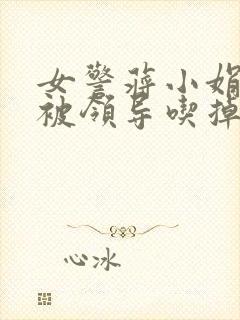 女警蒋小娟
被领导喫掉
心冰